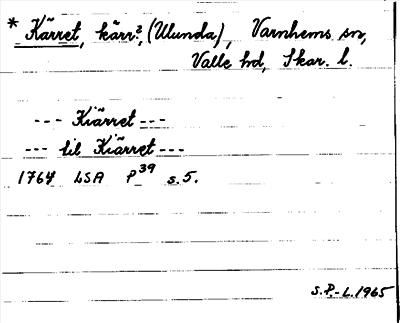 * Kärret, kärr?, (Ulunda), Varnhems sn,
Valle hd, Skar. l.
--- Kiärret ---
--- til Kiärret ---
1764 LSA P 39 s. 5.
S.P.-L. 1965